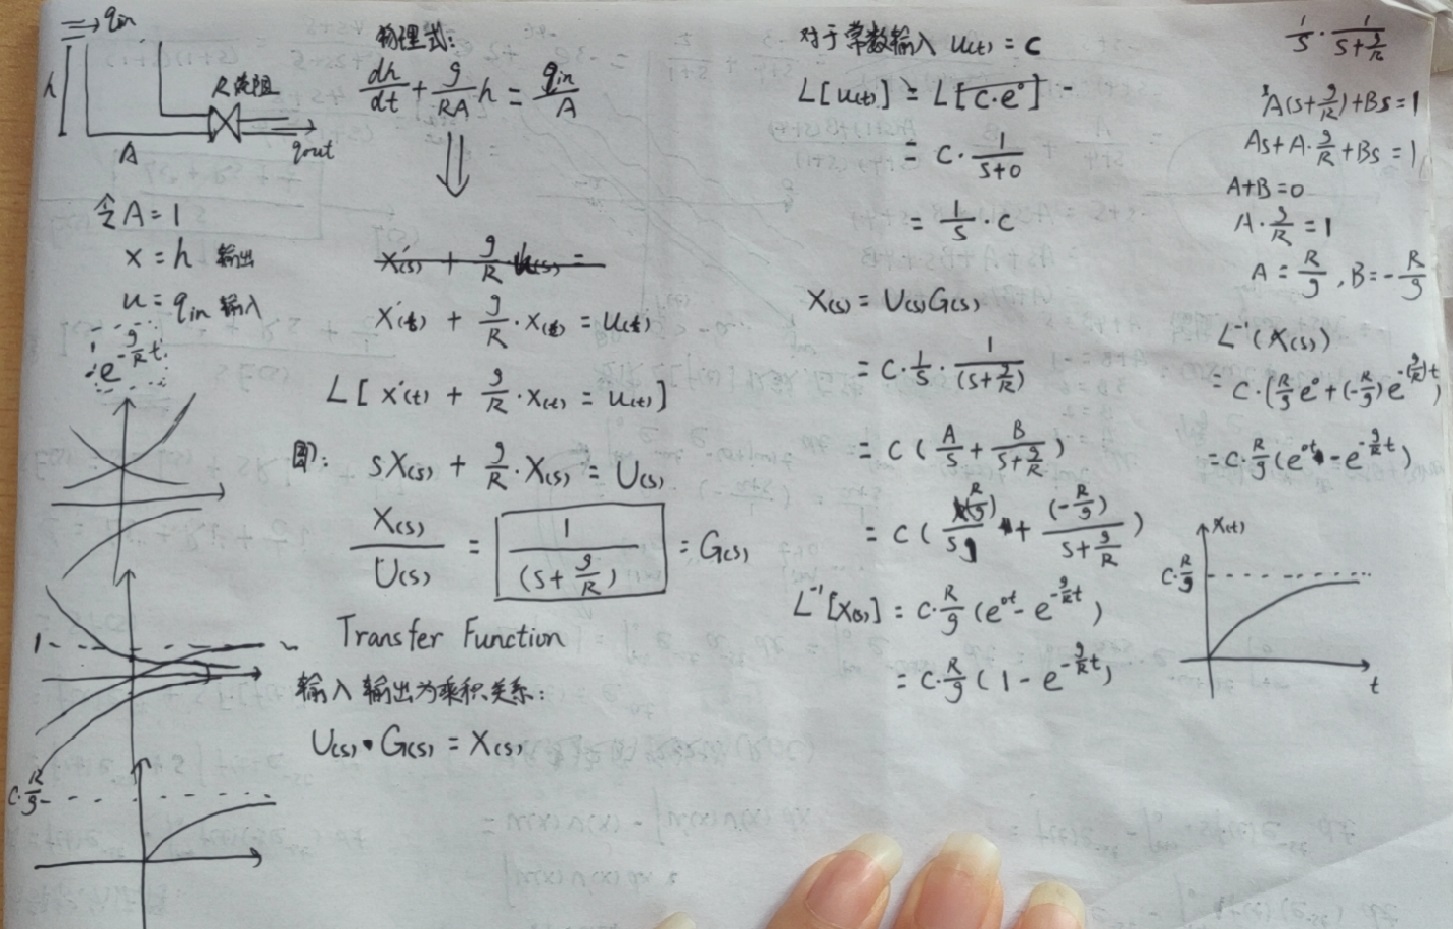 q_in
h
R 流阻
A
q_out
令 A = 1
x = h 输出
u = q_in 输入
e^{-g/R t}
1
C·R/g
物理式:
dh/dt + g/(RA) h = q_in/A
x'(t) + g/R · x(t) = u(t)
L[x'(t) + g/R · x(t) = u(t)]
即: sX(s) + g/R · X(s) = U(s)
X(s)/U(s) = 1/(s + g/R) = G(s)
Transfer Function
输入输出为乘积关系:
U(s)·G(s) = X(s)
对于常数输入 u(t) = C
L[u(t)] = L[C·e^0]
= C · 1/(s+0)
= 1/s · C
X(s) = U(s)G(s)
= C · 1/s · 1/(s + g/R)
= C (A/s + B/(s + g/R))
= C ( + (-R/g)/(s + g/R))
L^{-1}[X(s)] = C·R/g (e^{0t} - e^{-g/R t})
= C·R/g (1 - e^{-g/R t})
1/s · 1/(s + g/R)
A(s + g/R) + Bs = 1
As + A·g/R + Bs = 1
A + B = 0
A · g/R = 1
A = R/g, B = -R/g
L^{-1}(X(s))
= C·(R/g e^0 + (-R/g) e^{-(g/R)t})
= C·R/g (e^{0t} - e^{-g/R t})
x(t)
C·R/g
t